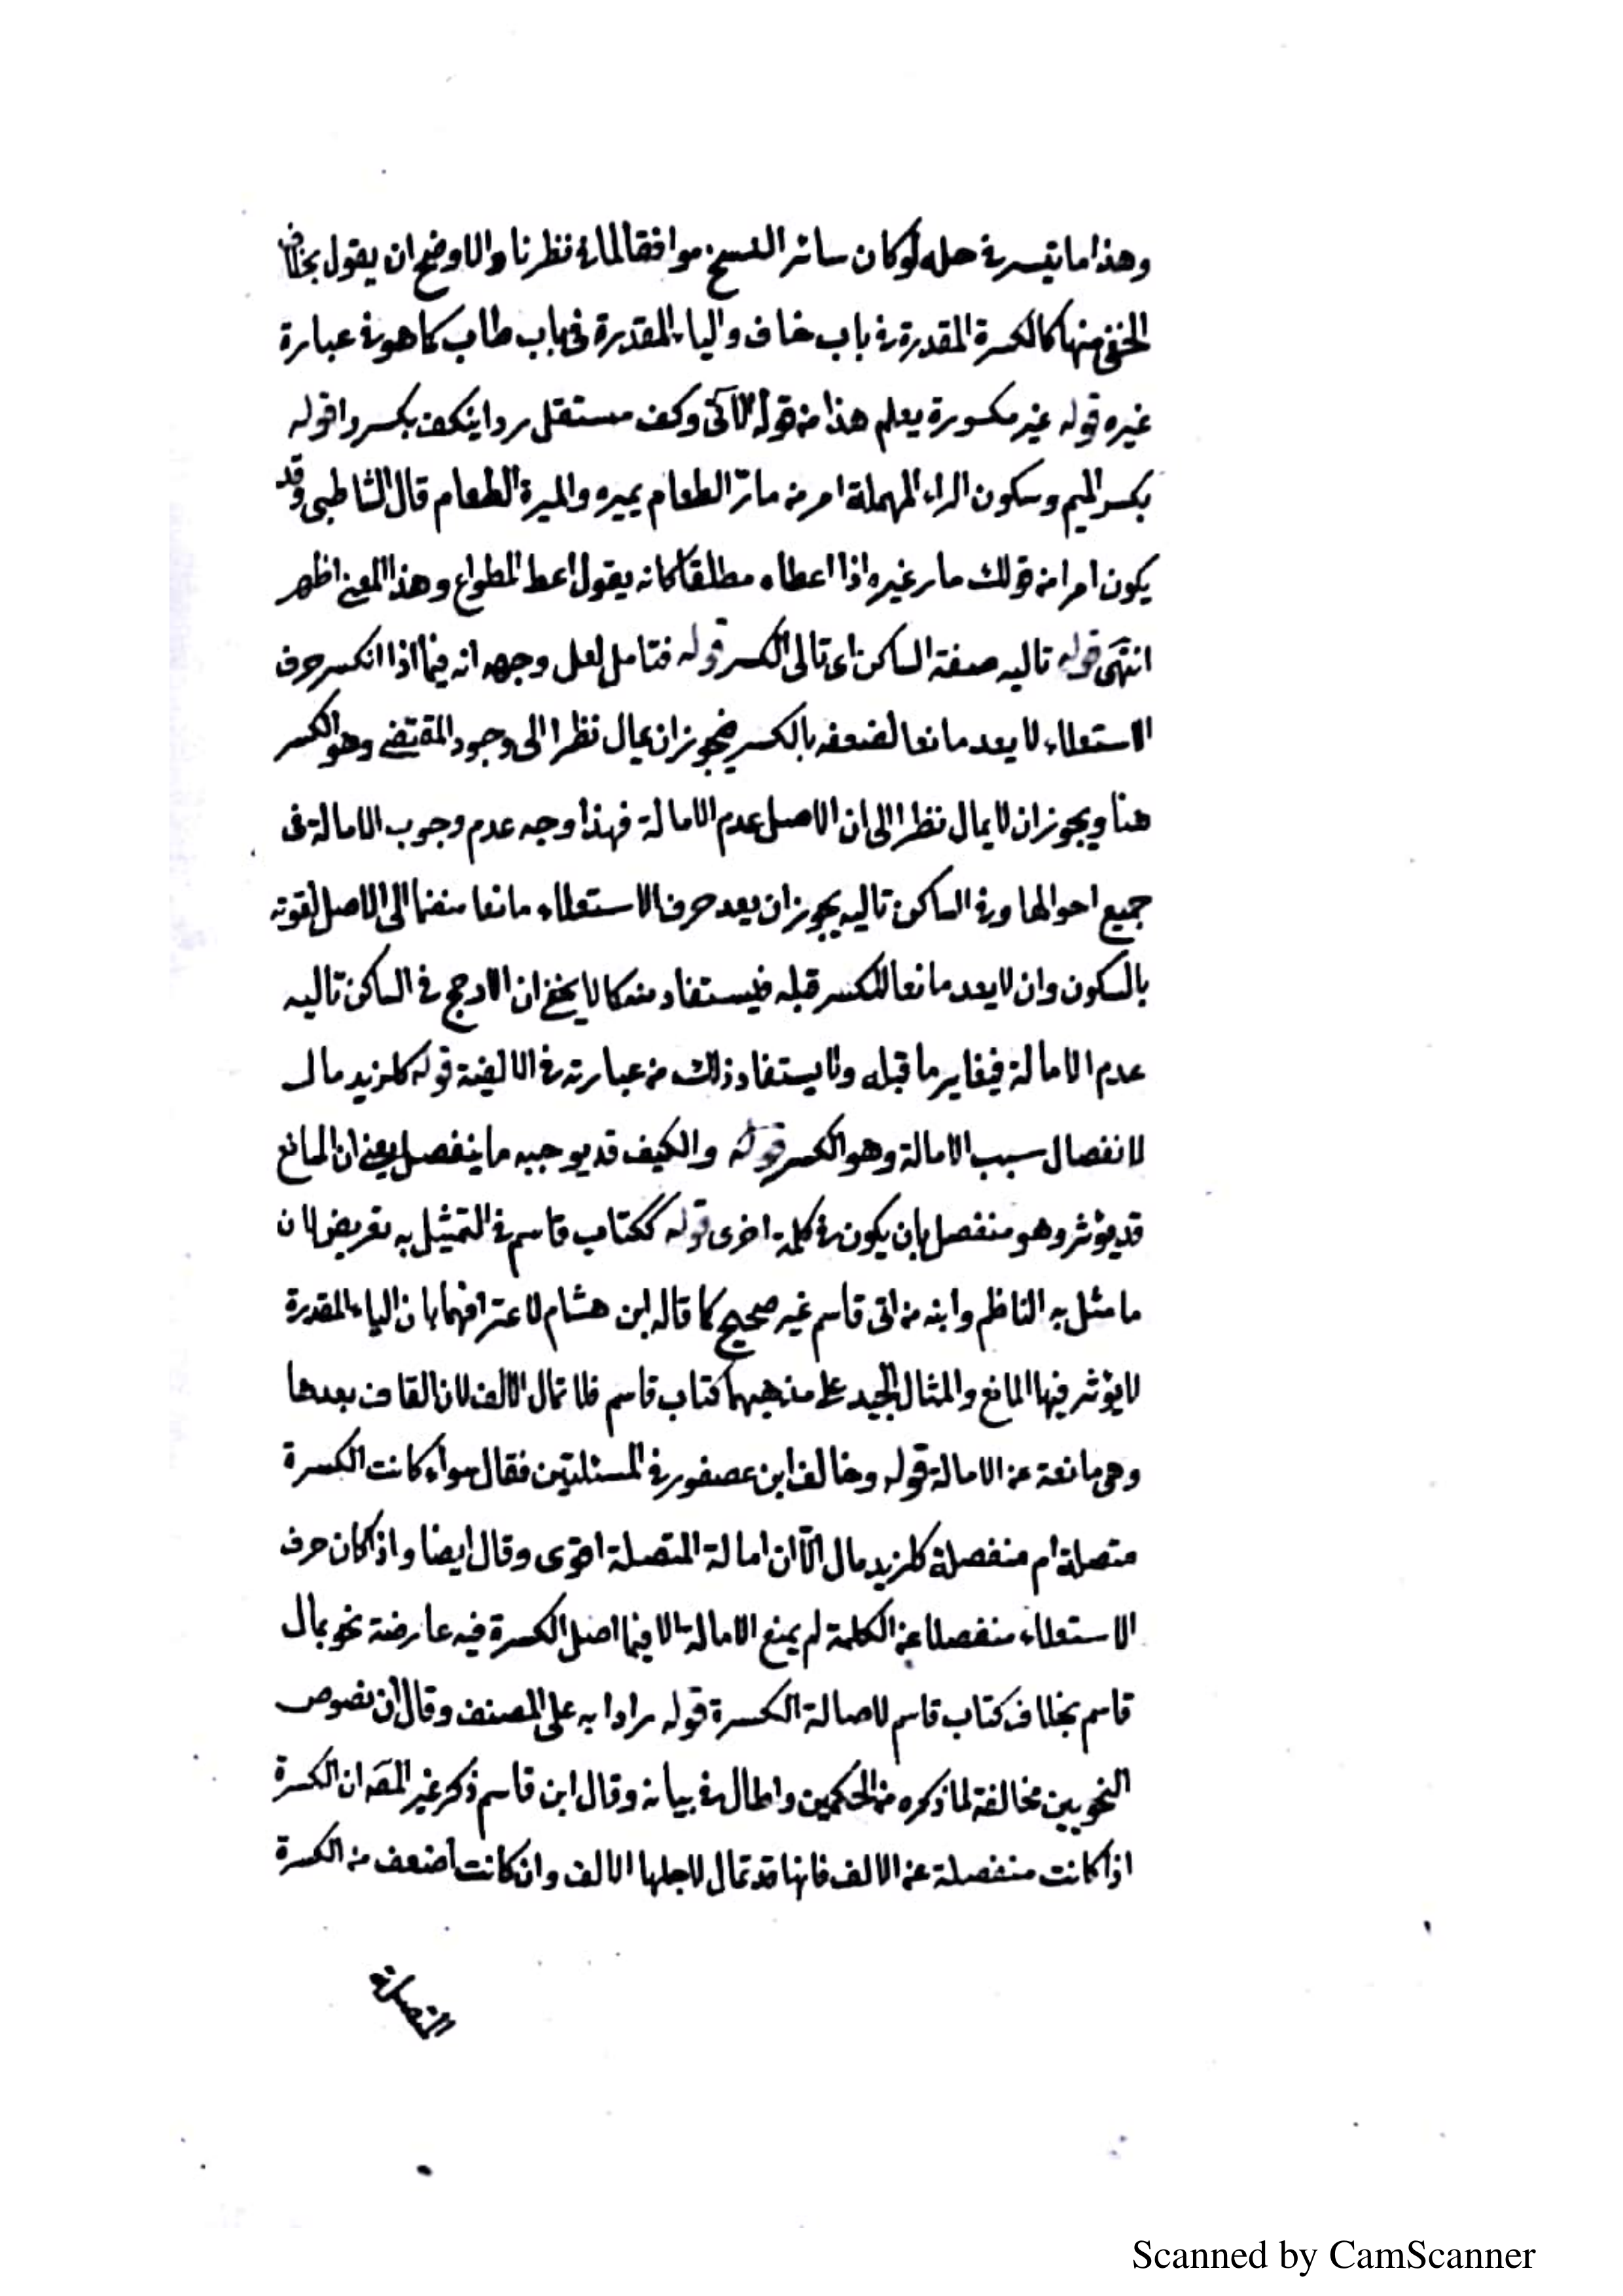 وهذا ما تيسر في حله لو كان سائر النسخ موافقا لما في نظرنا والاوضح ان يقول بخلاف
الخفي منها كالكسرة المقدرة في باب خاف والياء المقدرة في باب طاب كما هو في عبارة
غيره قوله غير مكسورة يعلم هذا من قوله الآتي وكف مستقل ردا ينكف بكسر را قوله
بكسر الميم وسكون الراء المهملة امر من مار الطعام يميره والميرة الطعام قال الشاطبي وقد
يكون امرا من قولك مار غيره اذا اعطاه مطلقا كانه يقول اعط المطواع وهذا المعنى اظهر
انتهى قوله تاليه صفة الساكن اي تالي الكسر قوله فتامل لعل وجهه انه فيما اذا انكسر حرف
الاستعلاء لا يعد مانعا لضعفه بالكسر فيجوز ان يمال نظرا الى وجود المقتضي وهو الكسر
هنا ويجوز ان لا يمال نظرا الى ان الاصل عدم الامالة فهذا وجه عدم وجوب الامالة في
جميع احوالها وفي الساكن تاليه يجوز ان يعد حرف الاستعلاء مانعا منضما الى الاصل لقوته
بالسكون وان لا يعد مانعا للكسر قبله فيستفاد منه كما لا يخفى ان الارجح في الساكن تاليه
عدم الامالة فيغاير ما قبله ولا يستفاد ذلك من عبارته في الالفية قوله كلزيد مال
لانفصال سبب الامالة وهو الكسر قوله والكيف قد يوجبه ما ينفصل يعني ان المانع
قد يؤثر وهو منفصل بان يكون في كلمة اخرى قوله ككتاب قاسم في التمثيل به تعريض لان
ما مثل به الناظم وابنه من اتى قاسم غير صحيح كما قاله ابن هشام لاعترافهما بان الياء المقدرة
لا يؤثر فيها المانع والمثال الجيد على مذهبهما كتاب قاسم فلا تمال الالف لان القاف بعدها
وهي مانعة عن الامالة قوله وخالف ابن عصفور في المسئلتين فقال سواء كانت الكسرة
متصلة ام منفصلة كلزيد مال الّا ان امالة المتصلة اقوى وقال ايضا واذا كان حرف
الاستعلاء منفصلا عن الكلمة لم يمنع الامالة الا فيما اصل الكسرة فيه عارضة نحو بمال
قاسم بخلاف كتاب قاسم لاصالة الكسرة قوله مرادا به على المصنف وقال ان نصوص
النحويين مخالفة لما ذكره من الحكمين واطال في بيانه وقال ابن قاسم ذكر غير المصَ ان الكسرة
اذا كانت منفصلة عن الالف فانها قد تمال لاجلها الالف وان كانت اضعف من الكسرة
Scanned by CamScanner